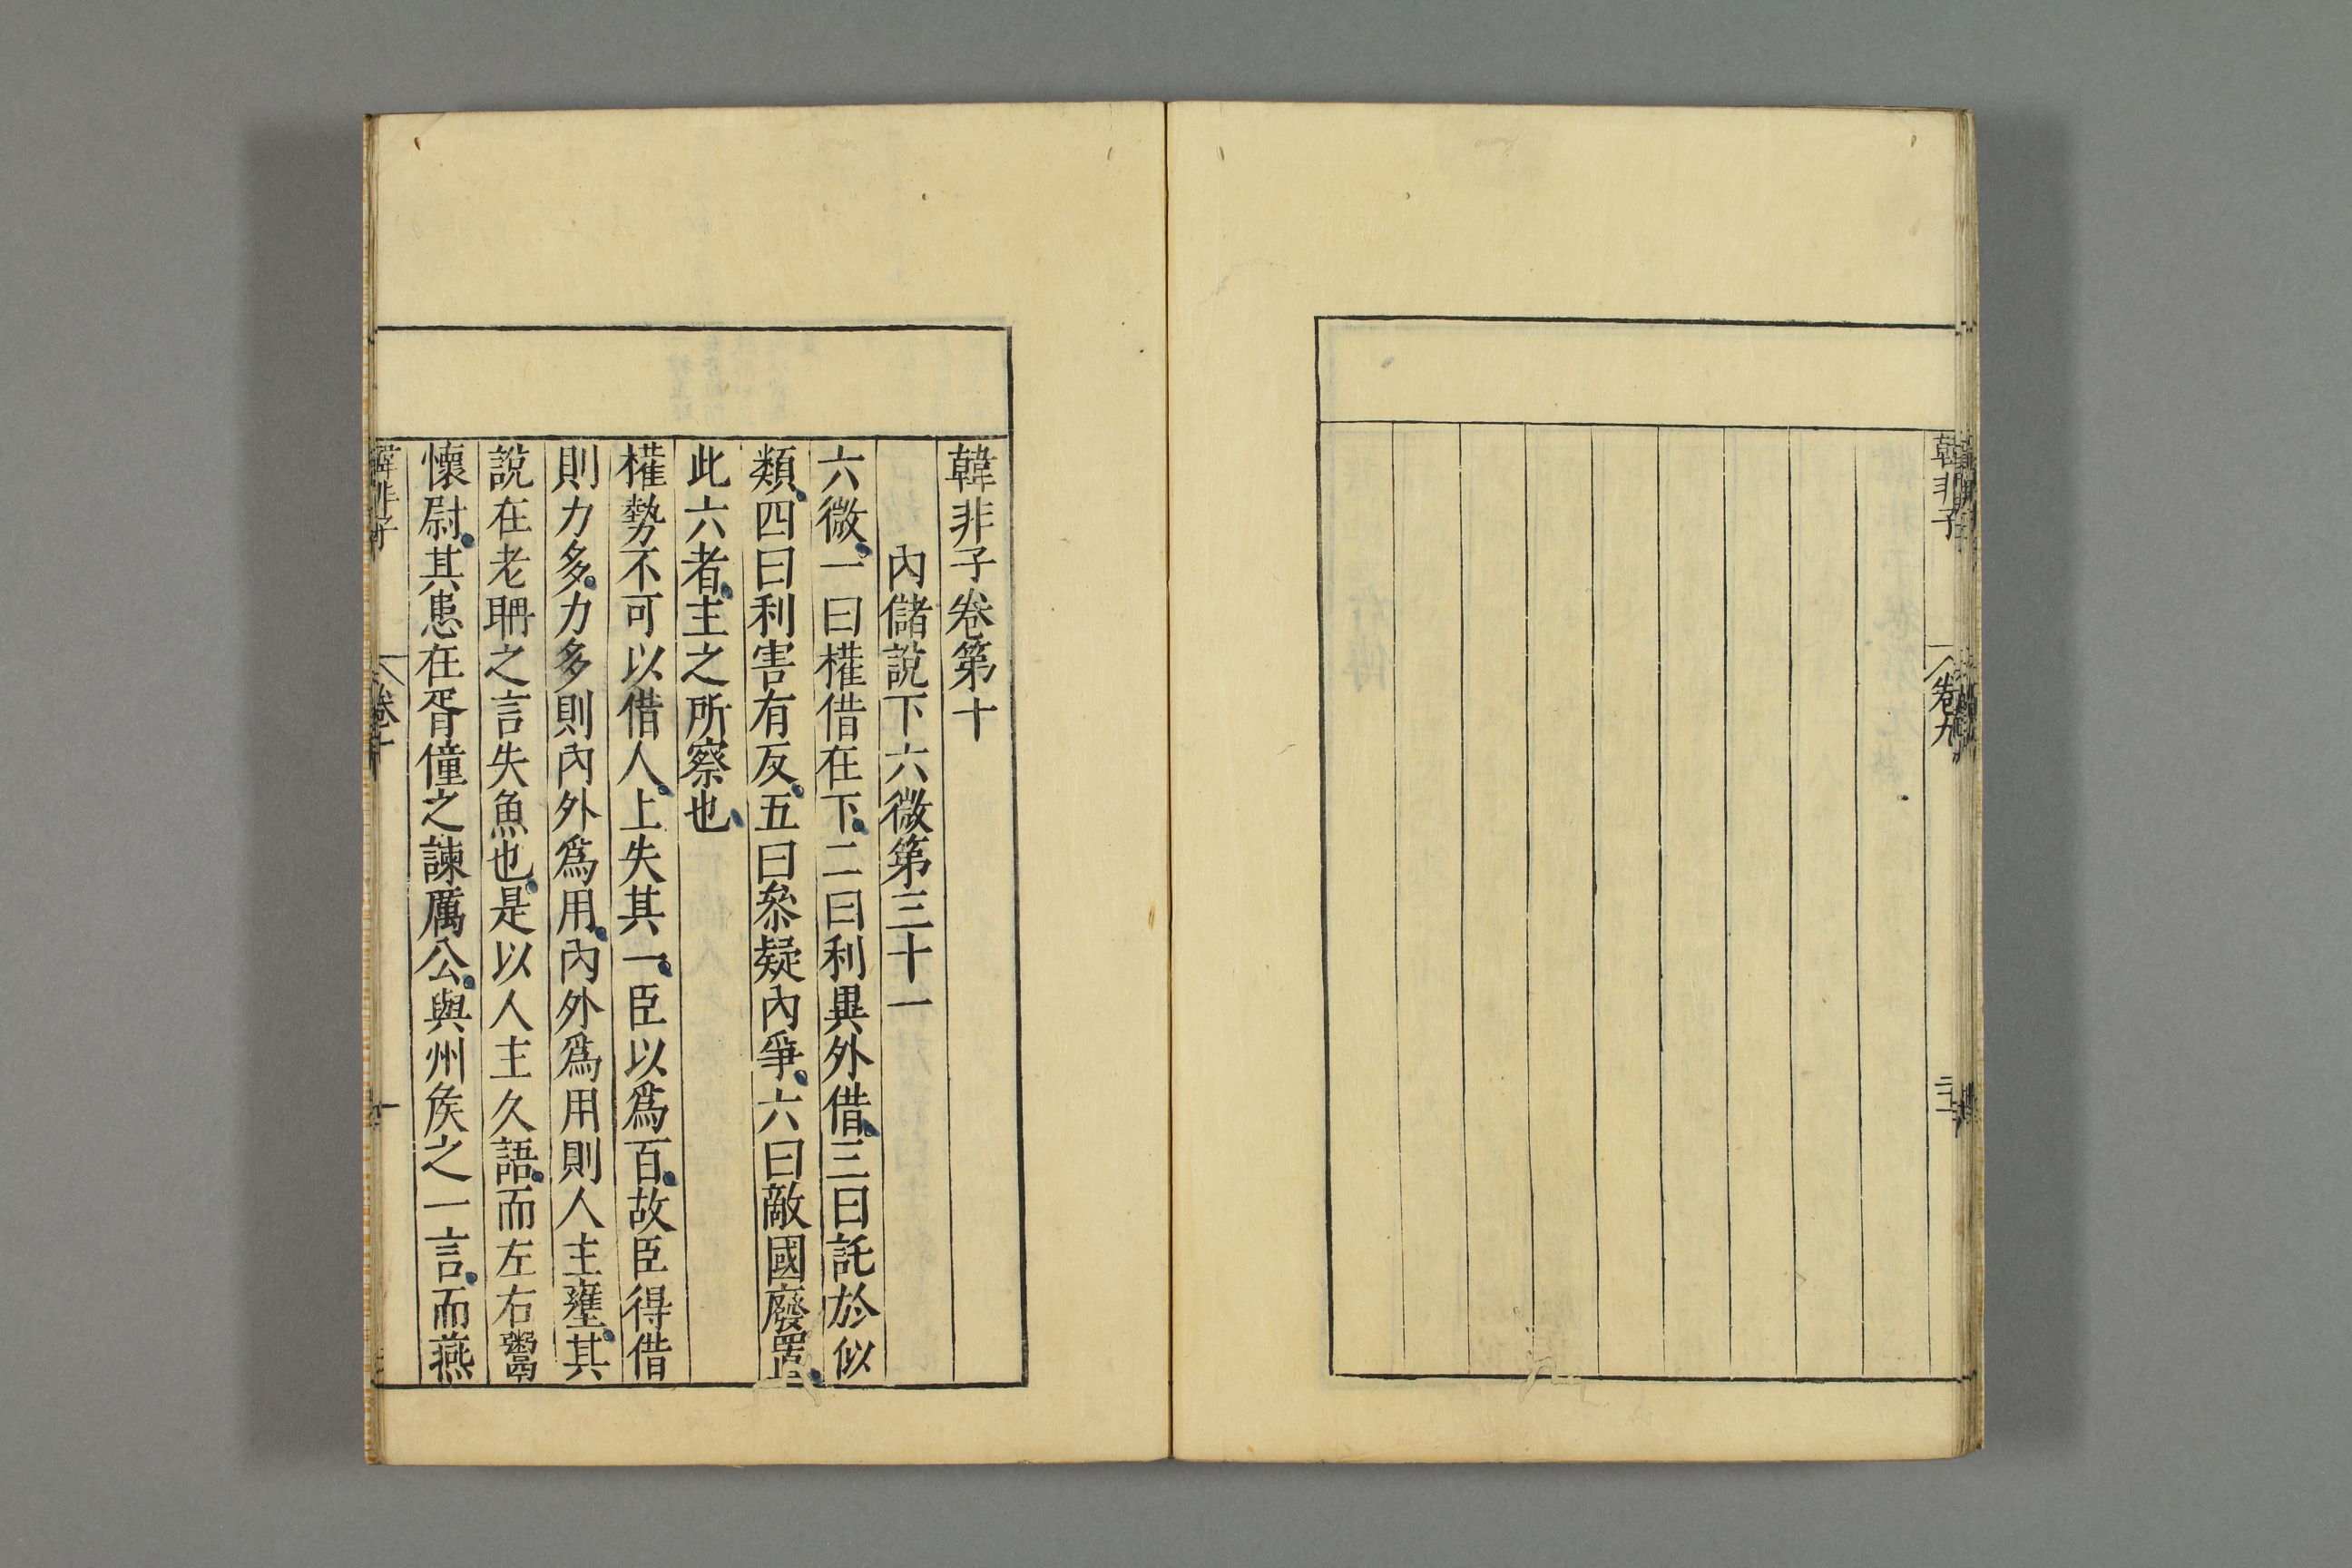 韓非子
卷九
韓非子卷第十
內儲說下六微第三十一
六微、一曰權借在下、二曰利異外借、三曰託於似
類、四曰利害有反、五曰叅疑內爭、六曰敵國廢置、
此六者、主之所察也、
權勢不可以借人、上失其一、臣以爲百、故臣得借
則力多、力多則內外爲用、內外爲用則人主壅、其
說在老聃之言失魚也、是以人主久語、而左右鬻
懷尉、其患在胥僮之諫厲公、與州侯之一言、而燕
韓非子
卷十
一